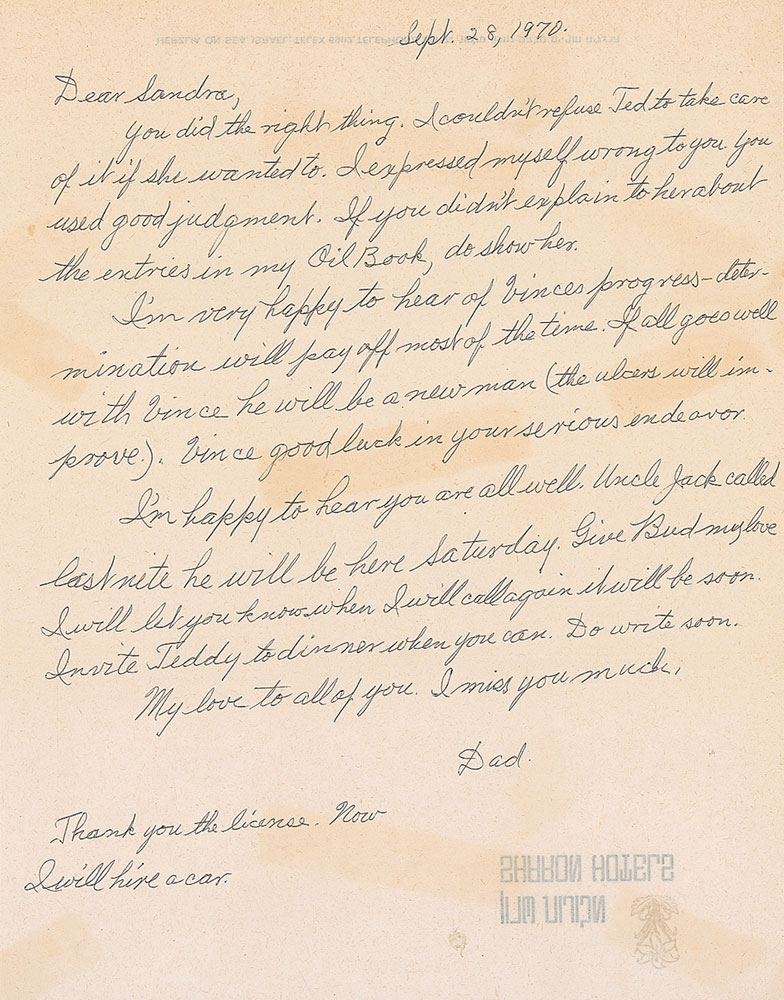 Sept. 28, 1970.
HERZLIA ON SEA, ISRAEL, TELEX
Dear Sandra,
You did the right thing. I couldn't refuse Ted to take care
of it if she wanted to. I expressed myself wrong to you. You
used good judgment. If you didn't explain to her about
the entries in my Oil Book, do show her.
I'm very happy to hear of Vinces progress-deter-
mination will pay off most of the time. If all goes well
with Vince he will be a new man (the ulcers will im-
prove.). Vince good luck in your serious endeavor.
I'm happy to hear you are all well. Uncle Jack called
last nite he will be here Saturday. Give Bud my love
I will let you know when I will call again it will be soon.
Invite Teddy to dinner when you can. Do write soon.
My love to all of you. I miss you much,
Dad.
Thank you the license. Now
I will hire a car.
מלון שרון
SHARON HOTELS